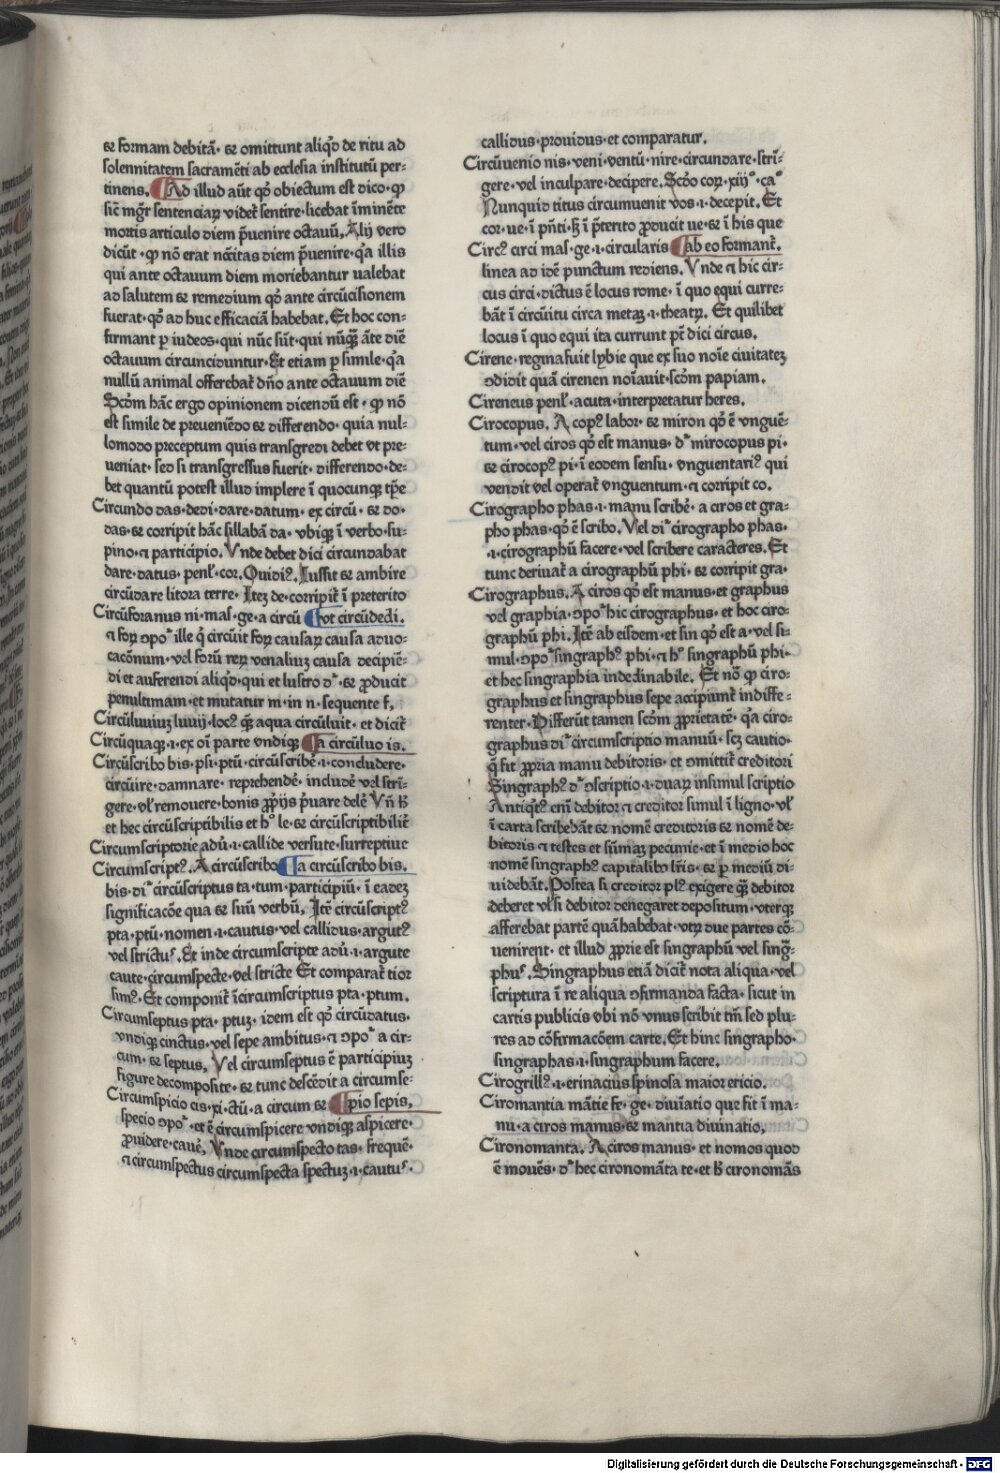 ⁊ formam debitã· ⁊ omittunt aliqͥd de ritu ad
solennitatem sacramẽti ab ecclesia institutũ per-
tinens. ¶Ad illud aũt qđ obiectum est dico· ꝙ
sic̃ mg̃r sentenciaꝝ videt̃ sentire· licebat ĩminẽte
mortis articulo diem p̃uenire octauũ, Alij vero
dicũt· ꝙ nõ erat nc̃citas diem p̃uenire· qͥa illis
qui ante octauum diem moriebantur ualebat
ad salutem ⁊ remedium qđ ante circũcisionem
fuerat· qđ ad huc efficaciã habebat. Et hoc con-
firmant ꝑ iudeos· qui nũc sũt· qui nũqͣ ãte diẽ
octauum circunciduntur· Et etiam ꝑ simile· qͥa
nullũ animal offerebat̃ dño ante octauum diẽ
Scdm hãc ergo opinionem dicendũ est· ꝙ nõ
est simile de preueniẽdo ⁊ differendo· quia nul-
lomodo preceptum quis transgredi debet vt pre-
ueniat· sed si transgressus fuerit· differendo· de-
bet quantũ potest illud implere ĩ quocunqꝫ tp̃e
Circundo das· dedi· dare· datum· ex circũ· ⁊ do·
das· ⁊ corripit hãc sillabã da· vbiqꝫ ĩ verbo· su-
pino· ⁊ participio. Vnde debet dici circundabat
dare· datus· penl̃· cor. Ouidiꝰ. Iussit ⁊ ambire
circũdare litora terre· Itеꝫ de· corripit̃ ĩ preterito
Circũforanus ni· mas· ge· a circũ ¶vt circũdedi·
⁊ foꝝ ꝯpoʳ ille q̃ circũit foꝝ causaꝝ causa aduo-
cacõnum· vel forũ reꝝ venaliuꝫ causa decipiẽ-
di et auferendi aliqͥd· qui et lustro dʳ· ⁊ ꝓducit
penultimam· et mutatur m· in n· sequente f,
Circũluuiuꝫ luuij· locꝰ qͣ aqua circũluit· et dicit̃
Circũquaqꝫ· i· ex oĩ parte vndiqꝫ ¶a circũluo is.
Circũscribo bis· psi· ptũ· circũscribẽ· i· concludere·
circũire· damnare· reprehendẽ· includẽ vel strĩ-
gere· vl̃ remouere· bonis ꝓprijs p̃uare delẽ Vñ h̃
et hec circũscriptibilis et hͦ le· ⁊ circũscriptibilit̃
Circumscriptorie adũ· i· callide versute· surreptiue
Circumscriptꝰ. A circũscribo ¶a circũscribo bis.
bis· diʳ circũscriptus ta· tum· participiũ· ĩ eadeꝫ
significacõe qua ⁊ suũ verbũ, Itẽ circũscriptꝰ
pta· ptũ· nomen· i· cautus· vel callidus· argutꝰ
vel strictuˢ. Et inde circumscripte adũ· i· argute
caute· circumspecte· vel stricte Et comparat̃ tior
simꝰ. Et componit̃ ĩcircumscriptus pta· ptum.
Circumseptus pta· ptuꝫ· idem est qđ circũdatus·
vndiqꝫ cinctus· vel sepe ambitus· ⁊ ꝯpoʳ a cir-
cum· ⁊ septus, Vel circumseptus ẽ participiuꝫ
figure decomposite· ⁊ tunc descẽdit a circumse-
Circumspicio cis· xi· ctũ· a circum ⁊ ¶pio sepis,
specio ꝯpoʳ· et ẽ circumspicere vndiqꝫ aspicere·
ꝓuidere· cauẽ, Vnde circumspecto tas· frequẽ·
⁊ circumspectus circumspecta spectuꝫ· i· cautuˢ·
callidus· prouidus· et comparatur.
Circũuenio nis· veni· ventũ· nire· circundare· strĩ-
gere· vel inculpare· decipere. Scđo coꝝ· xiijͦ· caͦ
Nunquid titus circumuenit vos· i· decepit. Et
cor· ue· ĩ pñti· h̃ ĩ p̃terito ꝓducit ue· ⁊ ĩ his que
Circꝰ circi mas· ge· i· circularis ¶ab eo formant̃.
linea ad idẽ punctum rediens. Vnde ⁊ hic cir-
cus circi· dictus ẽ locus rome· ĩ quo equi curre-
bãt ĩ circũitu circa metaꝫ· i· theatꝝ. Et quilibet
locus ĩ quo equi ita currunt pt̃ dici circus.
Cirene· regina fuit lybie que ex suo noĩe ciuitateꝫ
ꝯdidit quã cirenen noĩauit· scdm papiam.
Cireneus penl̃· acuta· interpretatur heres.
Cirocopus. A copꝰ labor· ⁊ miron qđ ẽ vnguẽ-
tum· vel ciros qđ est manus· dʳ mirocopus pi·
⁊ cirocopꝰ pi· ĩ eodem sensu· vnguentariꝰ qui
vendit vel operat̃ vnguentum· ⁊ corripit co.
Cirographo phas· i· manu scribẽ· a ciros et gra-
pho phas· qđ ẽ scribo. Vel diʳ cirographo phas·
·i· cirographũ facere· vel scribere caracteres. Et
tunc deriuat̃ a cirographũ phi· ⁊ corripit gra·
Cirographus. A ciros qđ est manus· et graphus
vel graphia· ꝯpoʳ hic cirographus· et hoc ciro-
graphũ phi. Itẽ ab eisdem· et sin qđ est a· vel si-
mul· ꝯpoʳ singraphꝰ phi· ⁊ hͦ singraphũ phi·
et hec singraphia indeclinabile. Et nõ ꝙ ciro-
graphus et singraphus sepe accipiunt̃ indiffe-
renter· Differũt tamen scdm ꝓprietatẽ· qͥa ciro-
graphus diʳ circumscriptio manuũ· scꝫ cautio·
q̃ fit ꝓpria manu debitoris· et ꝯmittit̃ creditori
Singraphꝰ dʳ ꝯscriptio· i· duaꝝ insimul scriptio
Antiqͥtꝰ enĩ debitor ⁊ creditor simul ĩ ligno· vl̃
ĩ carta scribebãt ⁊ nomẽ creditoris ⁊ nomẽ de-
bitoris ⁊ testes et sũmaꝫ pecunie· et ĩ medio hoc
nomẽ singraphꝰ capitalibꝰ lr̃is· ⁊ ꝑ mediũ di-
uidebãt. Postea si creditor plꝰ exigere qͣ debitor
deberet vl̃ si debitor denegaret depositum· vterqꝫ
afferebat partẽ quã habebat· vtꝝ due partes cõ-
uenirent· et illud ꝓprie est singraphũ vel singͣ-
phuˢ. Singraphus etiã dicit̃ nota aliqua· vel
scriptura ĩ re aliqua ꝯfirmanda facta· sicut in
cartis publicis vbi nõ vnus scribit tm̃ sed plu-
res ad cõfirmacõem carte. Et hinc singrapho·
singraphas· i· singraphum facere.
Cirogrillꝰ· i· erinacius spinosa maior ericio.
Ciromantia mãtie fe· ge· diuĩatio que fit ĩ ma-
nu· a ciros manus· ⁊ mantia diuinatio,
Cironomanta. A ciros manus· et nomos quod
ẽ mouẽs· dʳ hec cironomãta te· et h̃ cironomãs
Digitalisierung gefördert durch die Deutsche Forschungsgemeinschaft - DFG